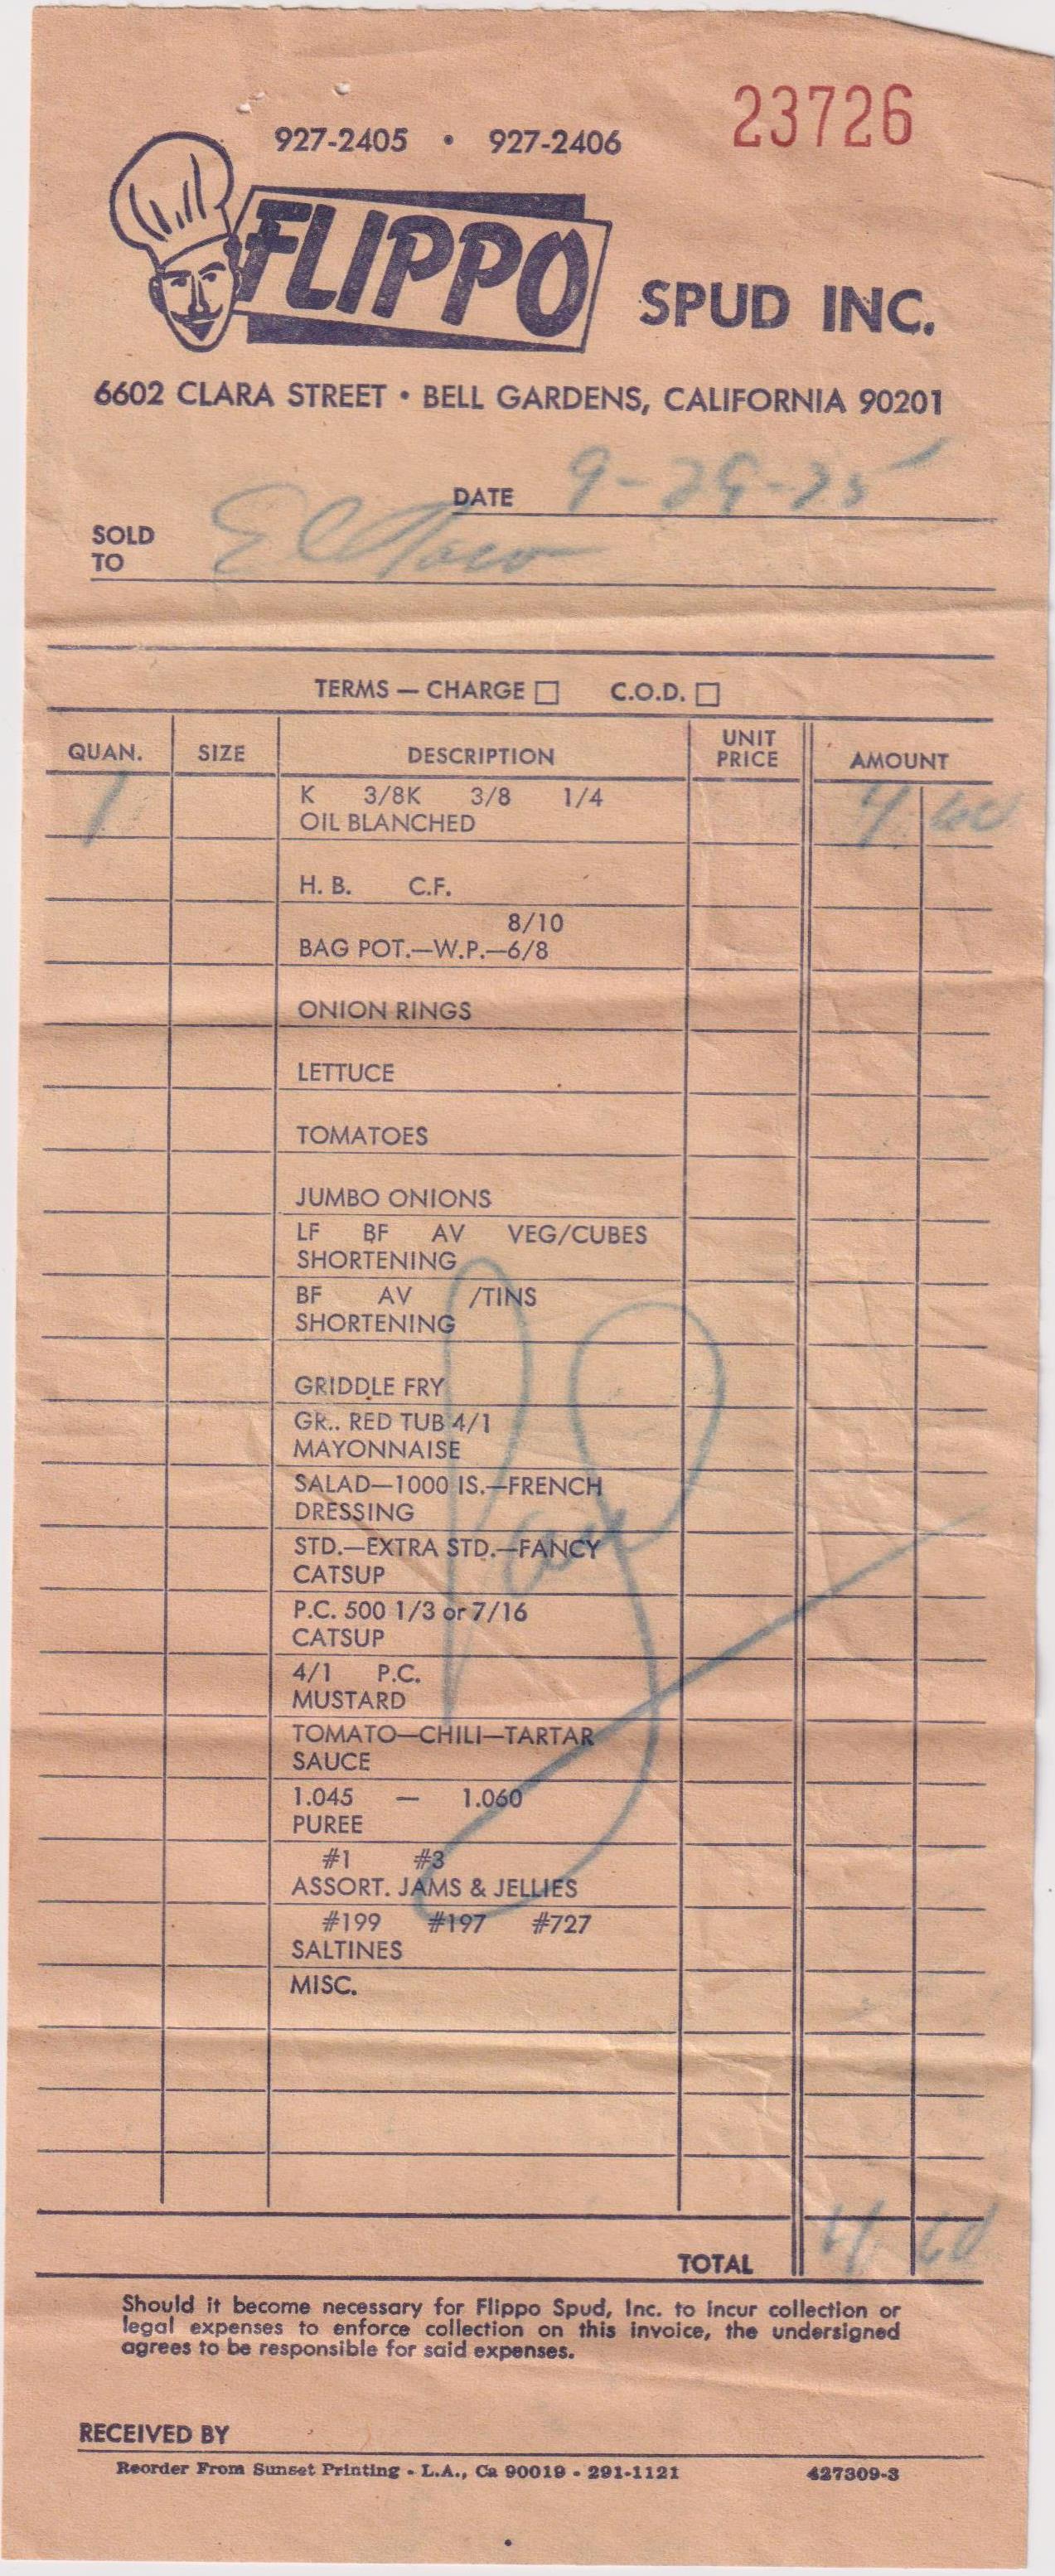 23726
927-2405 • 927-2406
FLIPPO SPUD INC.
6602 CLARA STREET • BELL GARDENS, CALIFORNIA 90201
DATE 9-29-75
SOLD
TO El Taco
TERMS — CHARGE □ C.O.D. □
QUAN. SIZE DESCRIPTION UNIT PRICE AMOUNT
1 K 3/8K 3/8 1/4 4 60
OIL BLANCHED
H. B. C.F.
8/10
BAG POT.—W.P.—6/8
ONION RINGS
LETTUCE
TOMATOES
JUMBO ONIONS
LF BF AV VEG/CUBES
SHORTENING
BF AV /TINS
SHORTENING
GRIDDLE FRY
GR.. RED TUB 4/1
MAYONNAISE
SALAD—1000 IS.—FRENCH
DRESSING
STD.—EXTRA STD.—FANCY
CATSUP
P.C. 500 1/3 or 7/16
CATSUP
4/1 P.C.
MUSTARD
TOMATO—CHILI—TARTAR
SAUCE
1.045 — 1.060
PUREE
#1 #3
ASSORT. JAMS & JELLIES
#199 #197 #727
SALTINES
MISC.
TOTAL 4 60
Should it become necessary for Flippo Spud, Inc. to incur collection or
legal expenses to enforce collection on this invoice, the undersigned
agrees to be responsible for said expenses.
RECEIVED BY
Reorder From Sunset Printing - L.A., Ca 90019 - 291-1121 427309-3